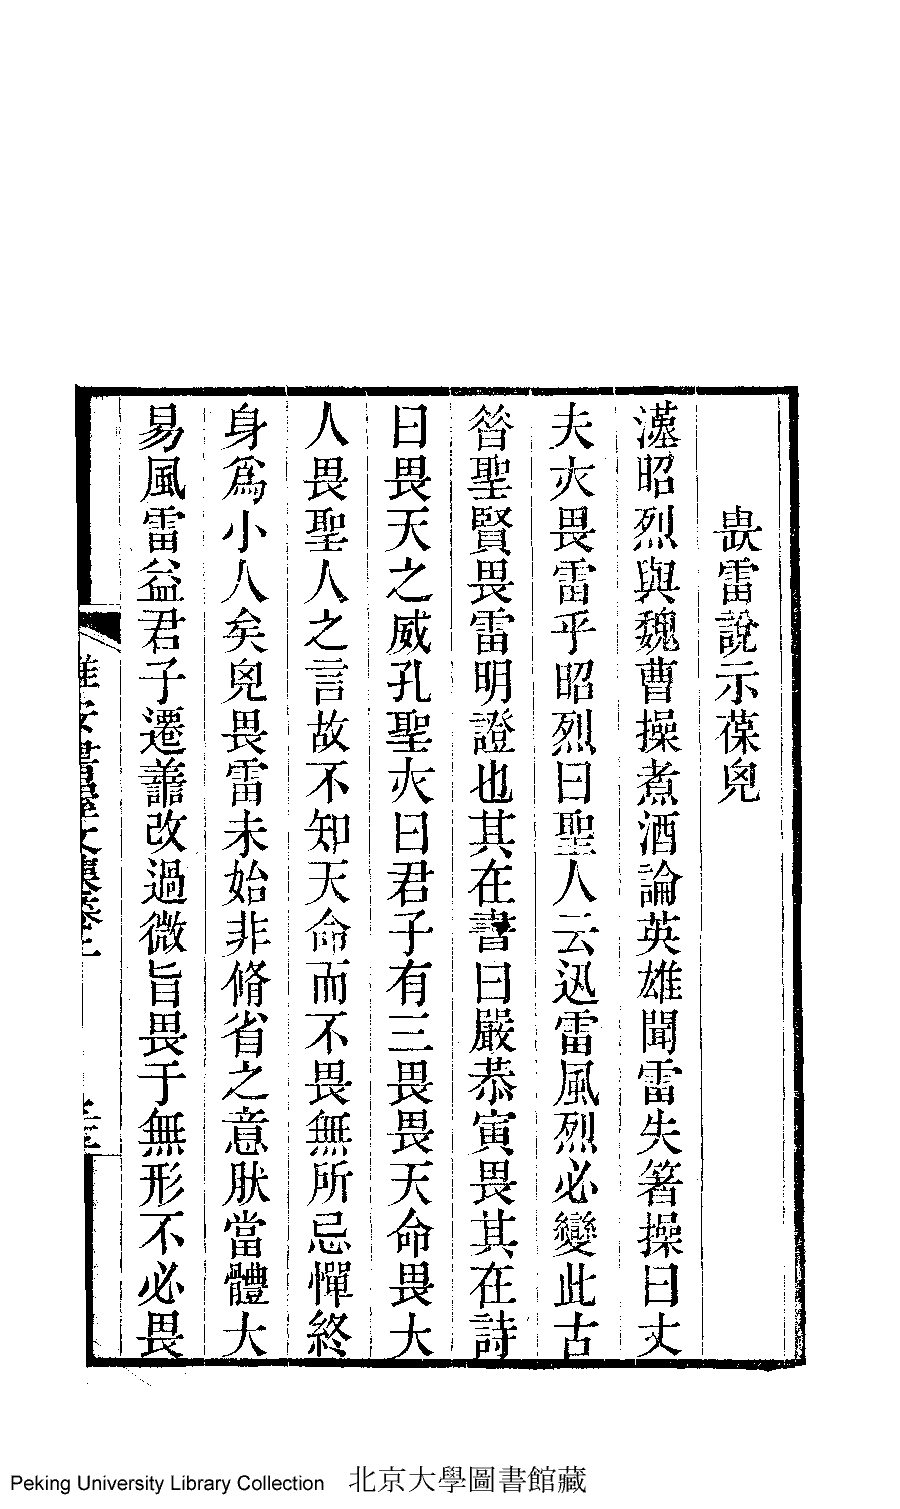 畏雷說示葆兒
漢昭烈與魏曹操煮酒論英雄聞雷失箸操曰丈
夫亦畏雷乎昭烈曰聖人云迅雷風烈必變此古
昔聖賢畏雷明證也其在書曰嚴恭寅畏其在詩
曰畏天之威孔聖亦曰君子有三畏畏天命畏大
人畏聖人之言故不知天命而不畏無所忌憚終
身為小人矣兒畏雷未始非脩省之意肰當體大
易風雷益君子遷善改過微旨畏于無形不必畏
安書屋文集卷
Peking University Library Collection 北京大學圖書館藏